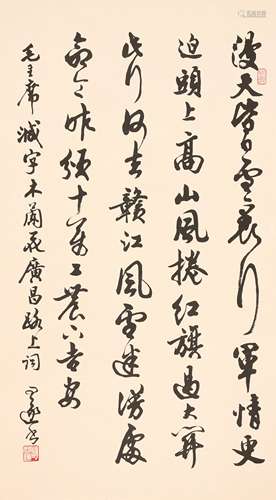 漫天皆白雪裏行軍情更
迫頭上高山風捲紅旗過大關
此行何去贛江風雪迷漫處
命令昨頒十萬工農下吉安
毛主席減字木蘭花廣昌路上詞